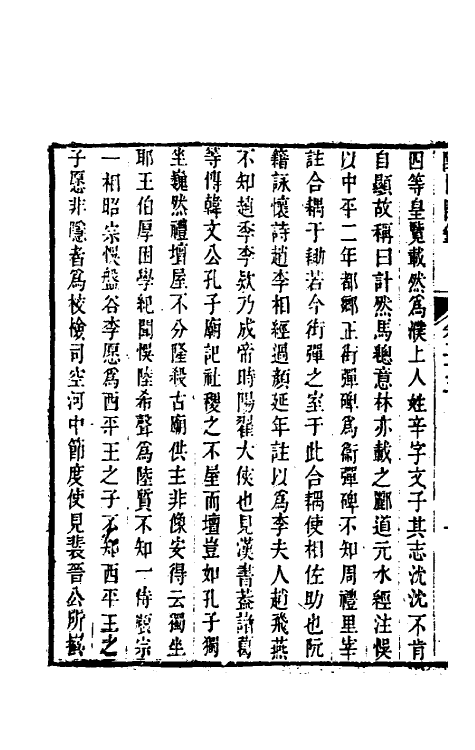 四等皇覽載然爲濮上人姓辛字文子其志沈沈不肯
自顯故稱曰計然馬總意林亦載之酈道元水經注悞
以中平二年都鄉正街彈碑爲衞彈碑不知周禮里宰
註合耦于耡若今街彈之室于此合耦使相佐助也阮
籍詠懷詩趙李相經過顏延年註以爲李夫人趙飛燕
不知趙季李欵乃成帝時陽翟大俠也見漢書蓋諸葛
等傳韓文公孔子廟記社稷之不屋而壇豈如孔子獨
坐巍然禮壇屋不分隆殺古廟供主非像安得云獨坐
耶王伯厚困學紀聞悞陸希聲爲陸贄不知一侍 宗
一相昭宗悞盤谷李愿爲西平王之子不知西平王之
子愿非隱者爲校檢司空河中節度使見裴晉公所撰